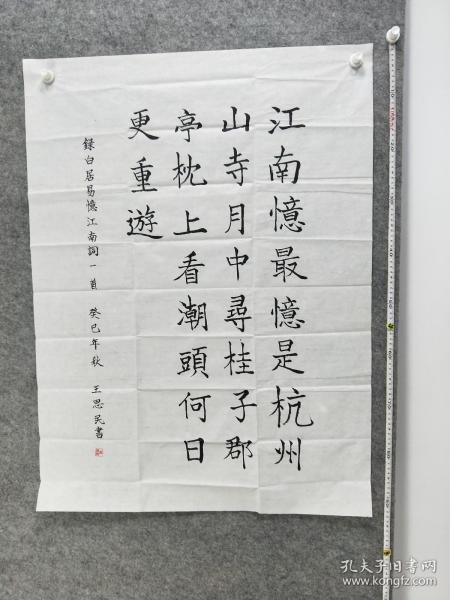 江南憶最憶是杭州
山寺月中尋桂子郡
亭枕上看潮頭何日
更重遊
録白居易憶江南詞一首 癸巳年秋 王思民書
孔夫子旧书网
www.kongfz.com